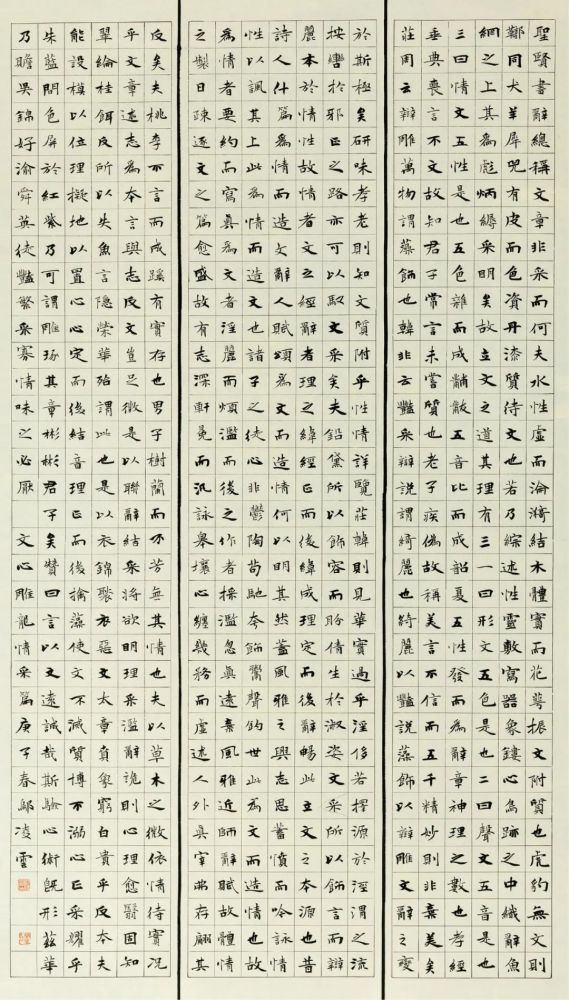 聖賢書辭總稱文章非采而何夫水性虛而淪漪結木體實而花萼振文附質也虎豹無文則
鞹同犬羊犀兕有皮而色資丹漆質待文也若乃綜述性靈敷寫器象鏤心鳥跡之中織辭魚
網之上其為彪炳縟采明矣故立文之道其理有三一曰形文五色是也二曰聲文五音是也
三曰情文五性是也五色雜而成黼黻五音比而成韶夏五性發而為辭章神理之數也孝經
垂典喪言不文故知君子常言未嘗質也老子疾偽故稱美言不信而五千精妙則非棄美矣
莊周云辯雕萬物謂藻飾也韓非云豔采辯說謂綺麗也綺麗以豔說藻飾以辯雕文辭之變
於斯極矣研味孝老則知文質附乎性情詳覽莊韓則見華實過乎淫侈若擇源於涇渭之流
按轡於邪正之路亦可以馭文采矣夫鉛黛所以飾容而盼倩生於淑姿文采所以飾言而辯
麗本於情性故情者文之經辭者理之緯經正而後緯成理定而後辭暢此立文之本源也昔
詩人什篇為情而造文辭人賦頌為文而造情何以明其然蓋風雅之興志思蓄憤而吟詠情
性以諷其上此為情而造文也諸子之徒心非鬱陶苟馳夸飾鬻聲釣世此為文而造情也故
為情者要約而寫真為文者淫麗而煩濫而後之作者採濫忽真遠棄風雅近師辭賦故體情
之製日疎逐文之篇愈盛故有志深軒冕而汎詠皋壤心纏幾務而虛述人外真宰弗存翩其
反矣夫桃李不言而成蹊有實存也男子樹蘭而不芳無其情也夫以草木之微依情待實況
乎文章述志為本言與志反文豈足徵是以聯辭結采將欲明理采濫辭詭則心理愈翳固知
翠綸桂餌反所以失魚言隱榮華殆謂此也是以衣錦褧衣惡文太章賁象窮白貴乎反本夫
能設模以位理擬地以置心心定而後結音理正而後摛藻使文不滅質博不溺心正采耀乎
朱藍間色屏於紅紫乃可謂雕琢其章彬彬君子矣贊曰言以文遠誠哉斯驗心術既形英華
乃贍吳錦好渝舜英徒豔繁采寡情味之必厭 文心雕龍情采篇庚子春鄔凌雲